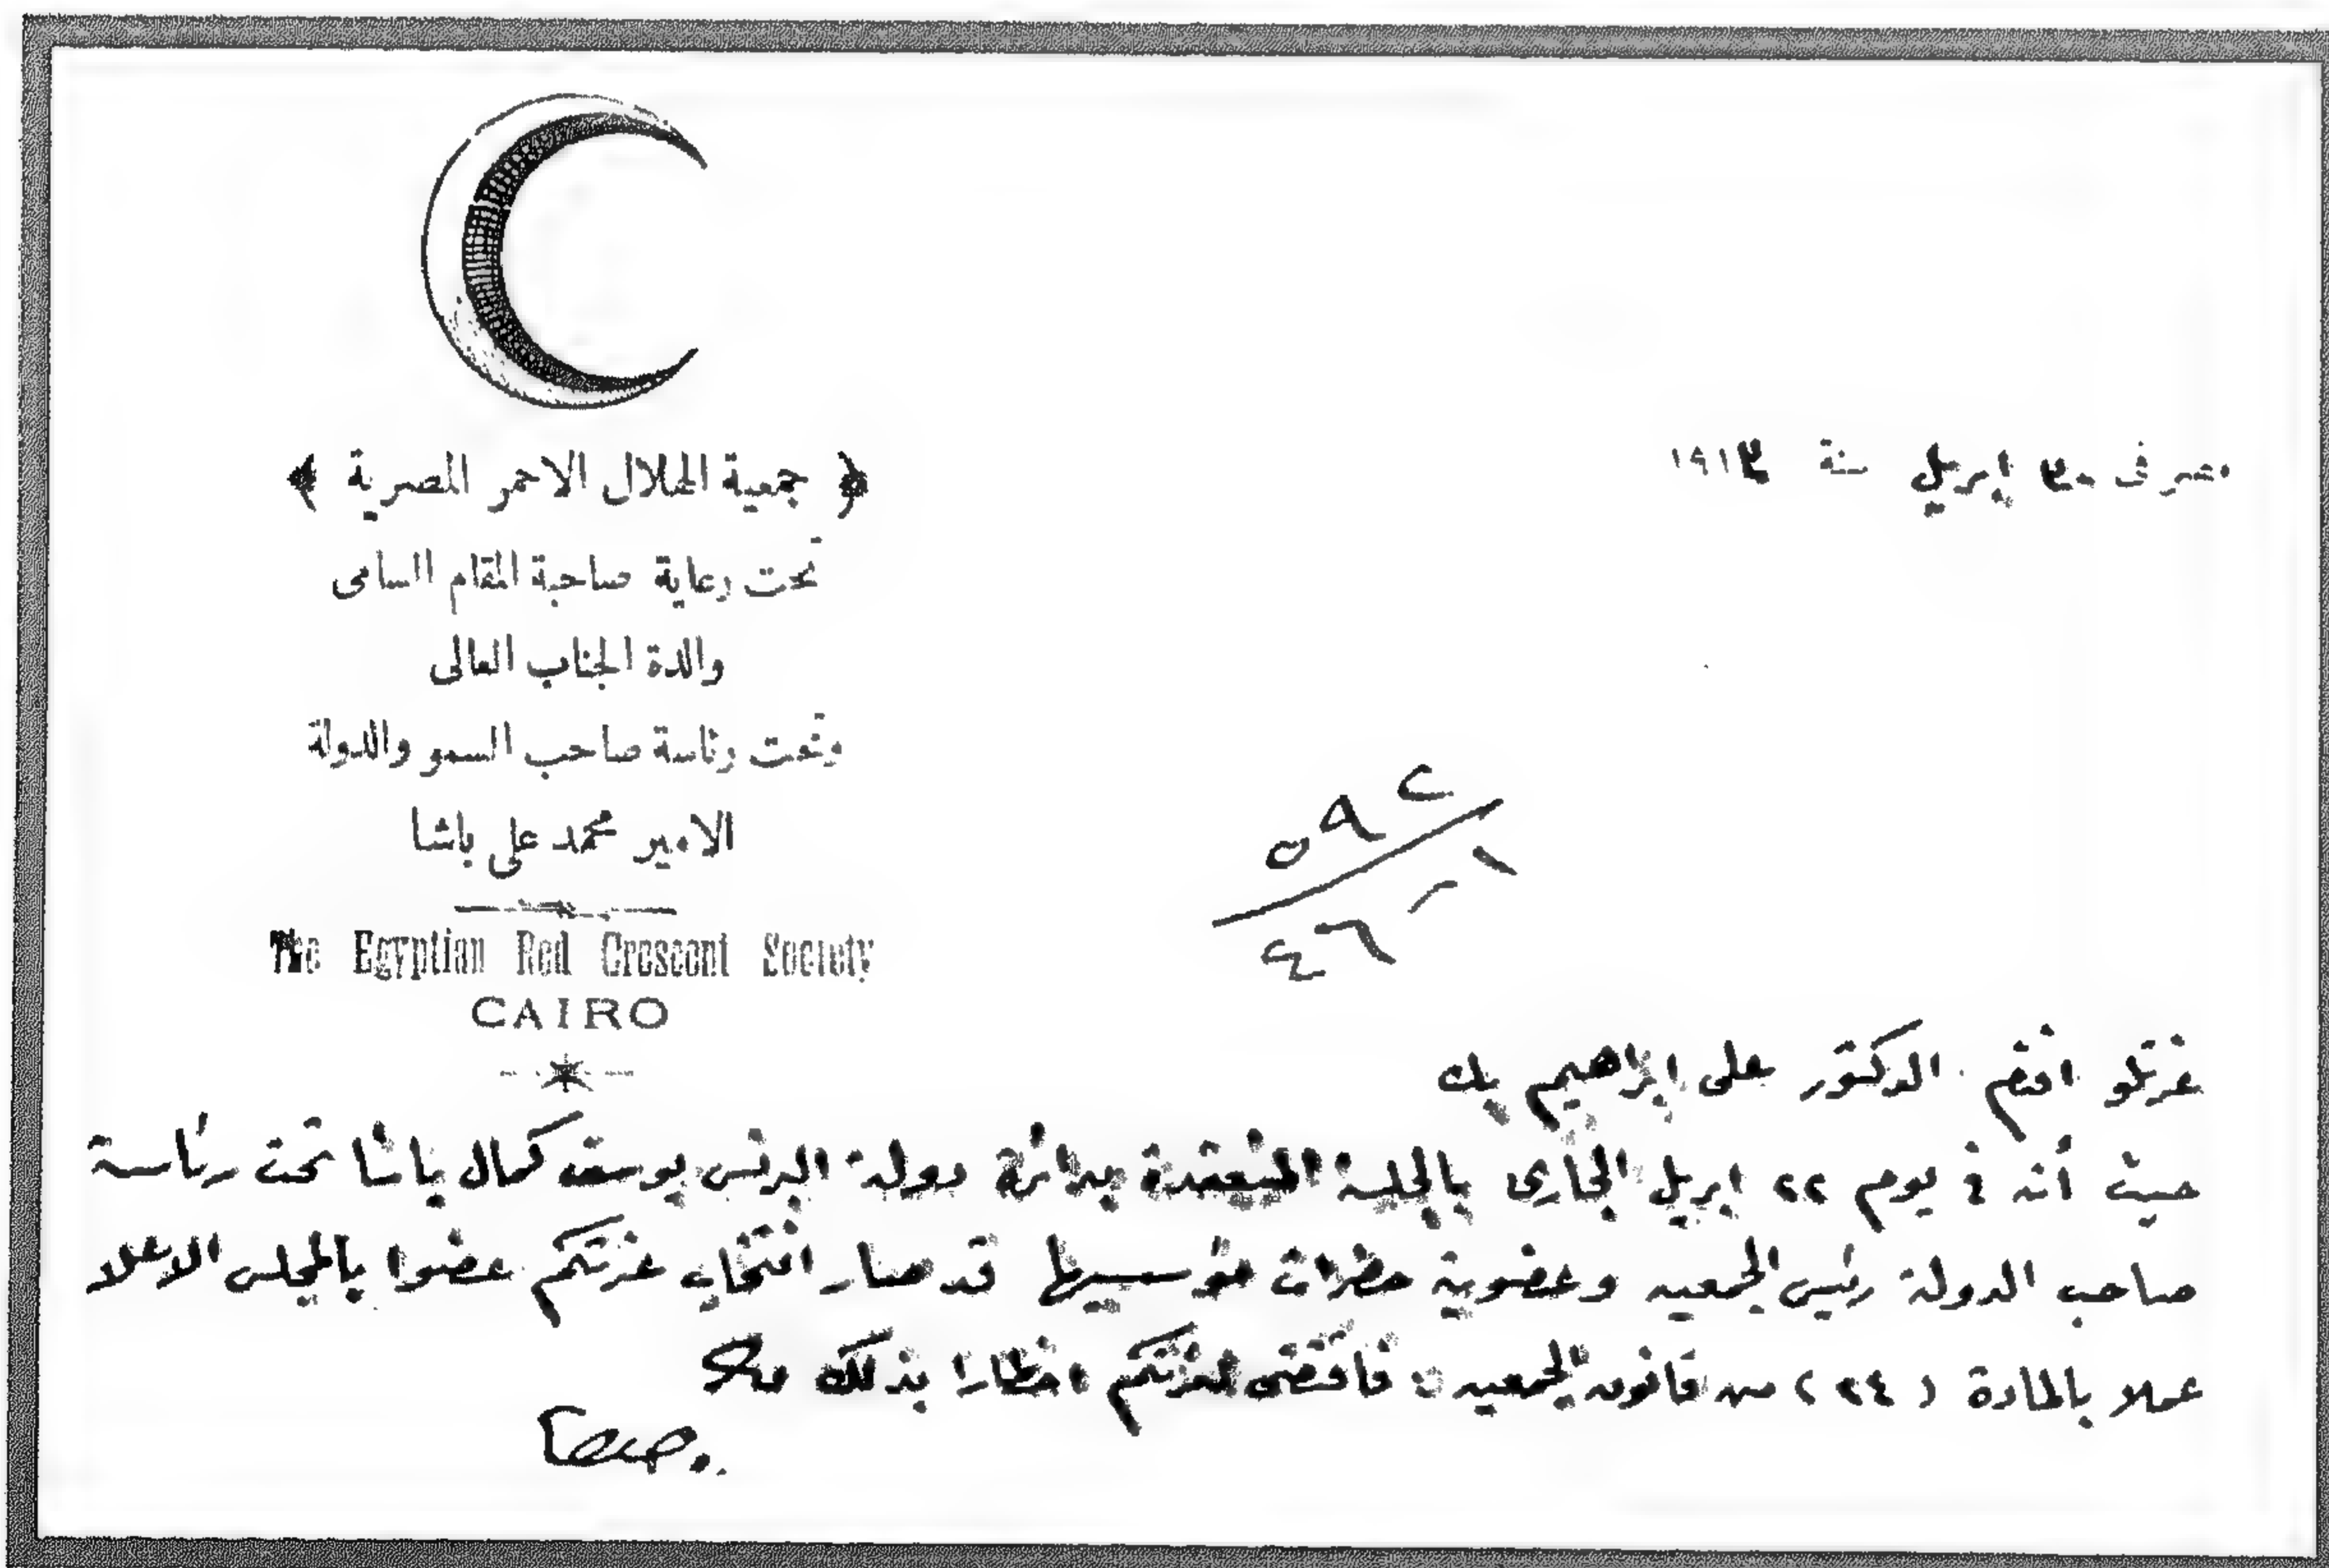 ﴿ جمعية الهلال الاحمر المصرية ﴾
تحت رعاية صاحبة المقام السامى
والدة الجناب العالى
وتحت رئاسة صاحب السمو والدولة
الامير محمد على باشا
The Egyptian Red Crescent Society
CAIRO
مصر فى ٣٠ إبريل سنة ١٩١٣
عزتلو افندم الدكتور على إبراهيم بك
حيث أنه فى يوم ٢٢ ابريل الجارى بالجلسة المنعقدة بدائرة دولة البرنس يوسف كمال باشا تحت رئاسة
صاحب الدولة رئيس الجمعيه وعضوية حضرات مؤسسيها قد صار انتخاب عزتكم عضوا بالمجلس الاعلا
عملا بالمادة (٢٤) من قانون الجمعيه فاقتضى لعزتكم اخطارا بذلك